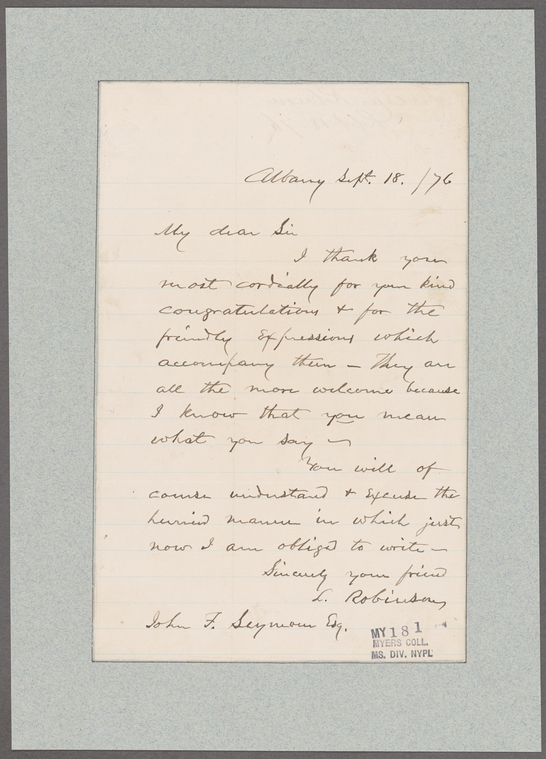 Albany Sept. 18. /76
My dear Sir
I thank you
most cordially for your kind
congratulations & for the
friendly expressions which
accompany them — They are
all the more welcome because
I know that you mean
what you say —
You will of
course understand & excuse the
hurried manner in which just
now I am obliged to write —
Sincerely your friend
L. Robinson
John F. Seymour Esq.
MY 181
MYERS COLL.
MS. DIV. NYPL